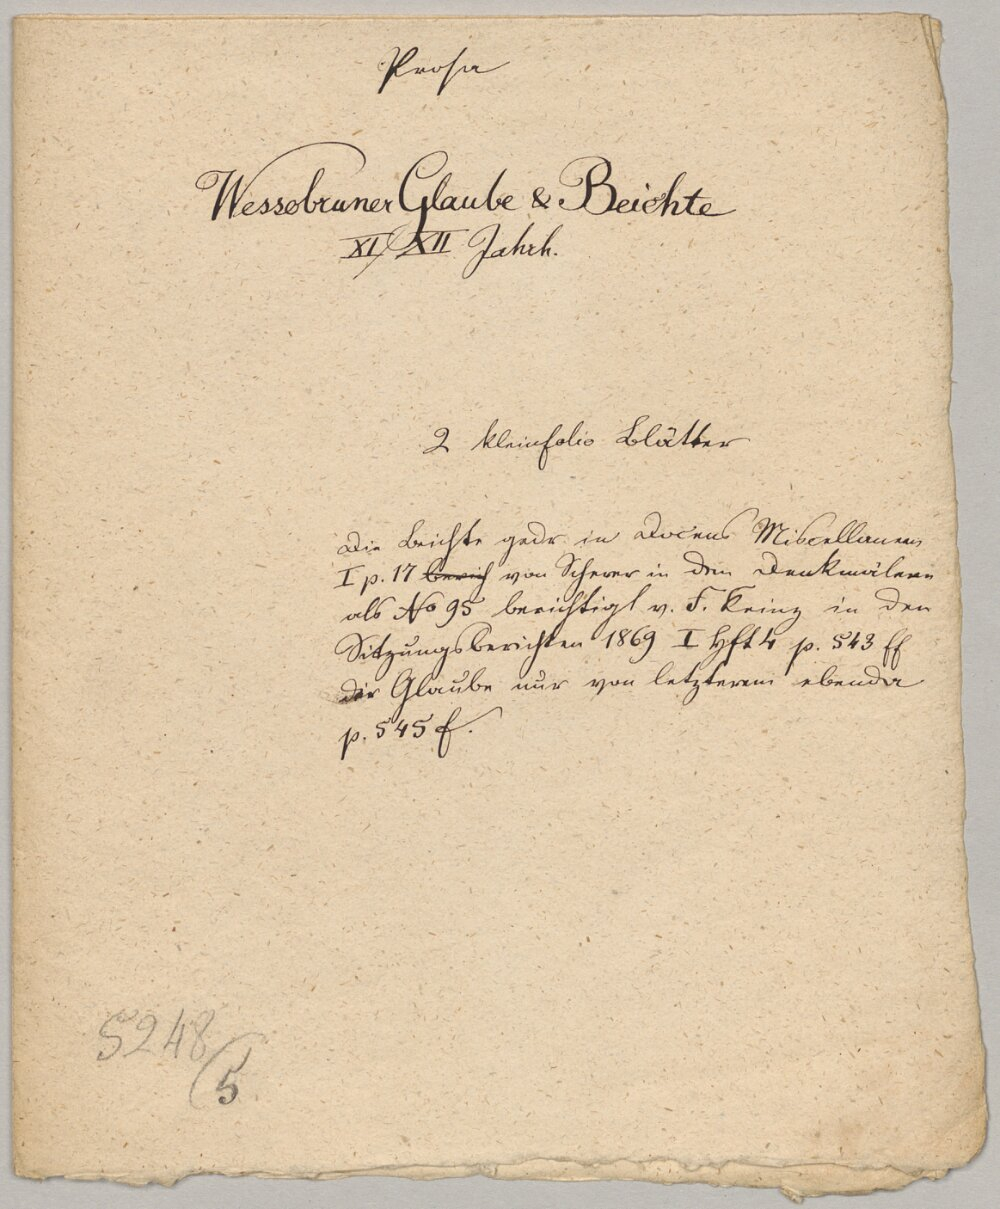 Prosa
Wessobruner Glaube & Beichte
XI/XII Jahrh.
2 kleinfolio Blätter
Die Beichte gedr. in Docens Miscellaneen
I p. 17 berich von Scherer in den Denkmälern
als No 95 berichtigt v. F. Keinz in den
Sitzungsberichten 1869 I Hft 4 p. 543 ff
der Glaube nur von letzterem ebenda
p. 545 f.
5248
5